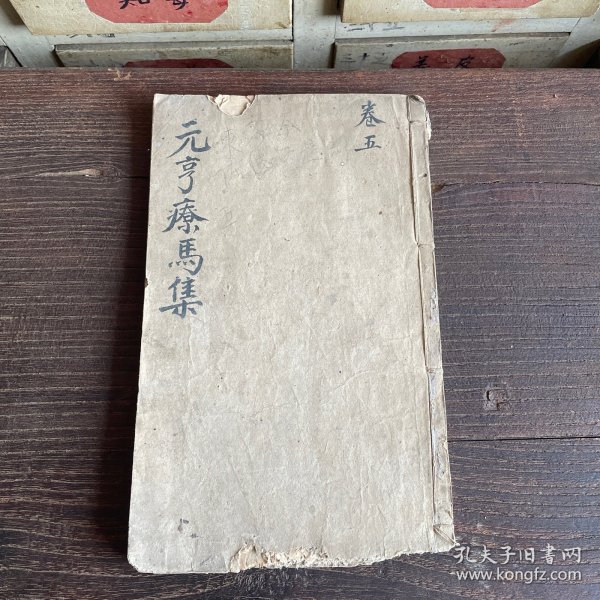 卷五
元亨療馬集
孔夫子旧书网
www.kongfz.com